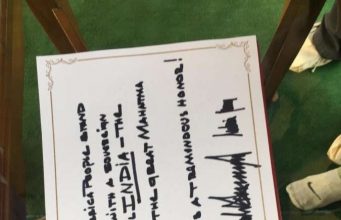 RICA PEOPLE STAND
WITH A SOVEREIGN
INDIA - THE
THE GREAT MAHATMA
S A TREMENDOUS HONOR!